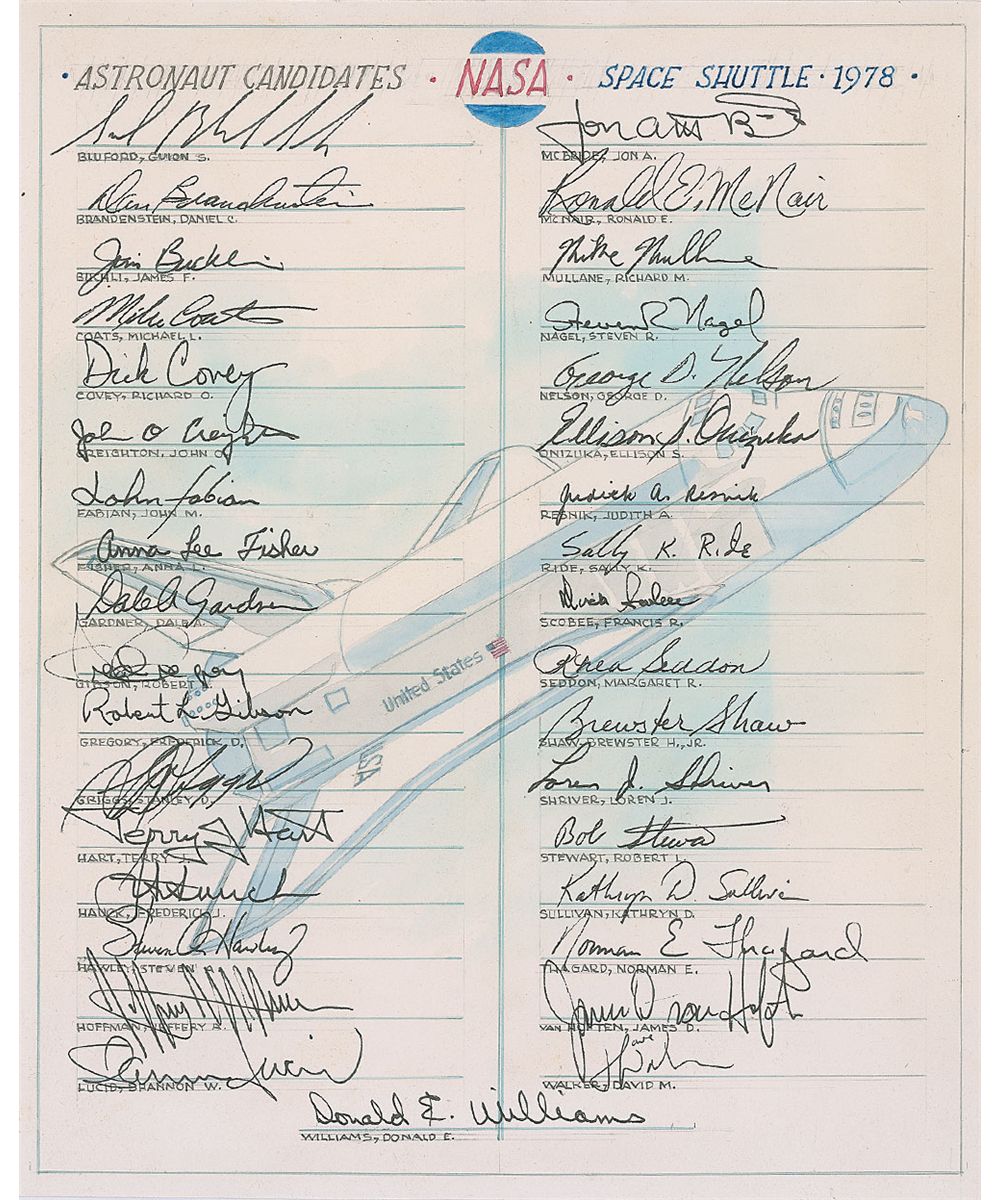 · ASTRONAUT CANDIDATES · NASA · SPACE SHUTTLE · 1978 ·
BLUFORD, GUION S.
Dan Brandenstein
BRANDENSTEIN, DANIEL C.
Jim Buchli
BUCHLI, JAMES F.
Mike Coats
COATS, MICHAEL L.
Dick Covey
COVEY, RICHARD O.
John O Creighton
CREIGHTON, JOHN O.
John Fabian
FABIAN, JOHN M.
Anna Lee Fisher
FISHER, ANNA L.
Dale A Gardner
GARDNER, DALE A.
GIBSON, ROBERT L.
Robert L. Gibson
GREGORY, FREDERICK D.
GRIGGS, STANLEY D.
Terry J Hart
HART, TERRY J.
HAUCK, FREDERICK J.
Steven A. Hawley
HAWLEY, STEVEN A.
HOFFMAN, JEFFERY A.
Shannon Lucid
LUCID, SHANNON W.
MCBRIDE, JON A.
Ronald E. McNair
MCNAIR, RONALD E.
Mike Mullane
MULLANE, RICHARD M.
Steven R Nagel
NAGEL, STEVEN R.
George D. Nelson
NELSON, GEORGE D.
Ellison S. Onizuka
ONIZUKA, ELLISON S.
Judith A. Resnik
RESNIK, JUDITH A.
Sally K. Ride
RIDE, SALLY K.
Dick Scobee
SCOBEE, FRANCIS R.
Rhea Seddon
SEDDON, MARGARET R.
Brewster Shaw
SHAW, BREWSTER H., JR.
Loren J. Shriver
SHRIVER, LOREN J.
Bob Stewart
STEWART, ROBERT L.
Kathryn D. Sullivan
SULLIVAN, KATHRYN D.
Norman E Thagard
THAGARD, NORMAN E.
James D van Hoften
VAN HOFTEN, JAMES D.
Dave Walker
WALKER, DAVID M.
Donald E. Williams
WILLIAMS, DONALD E.
United States
USA